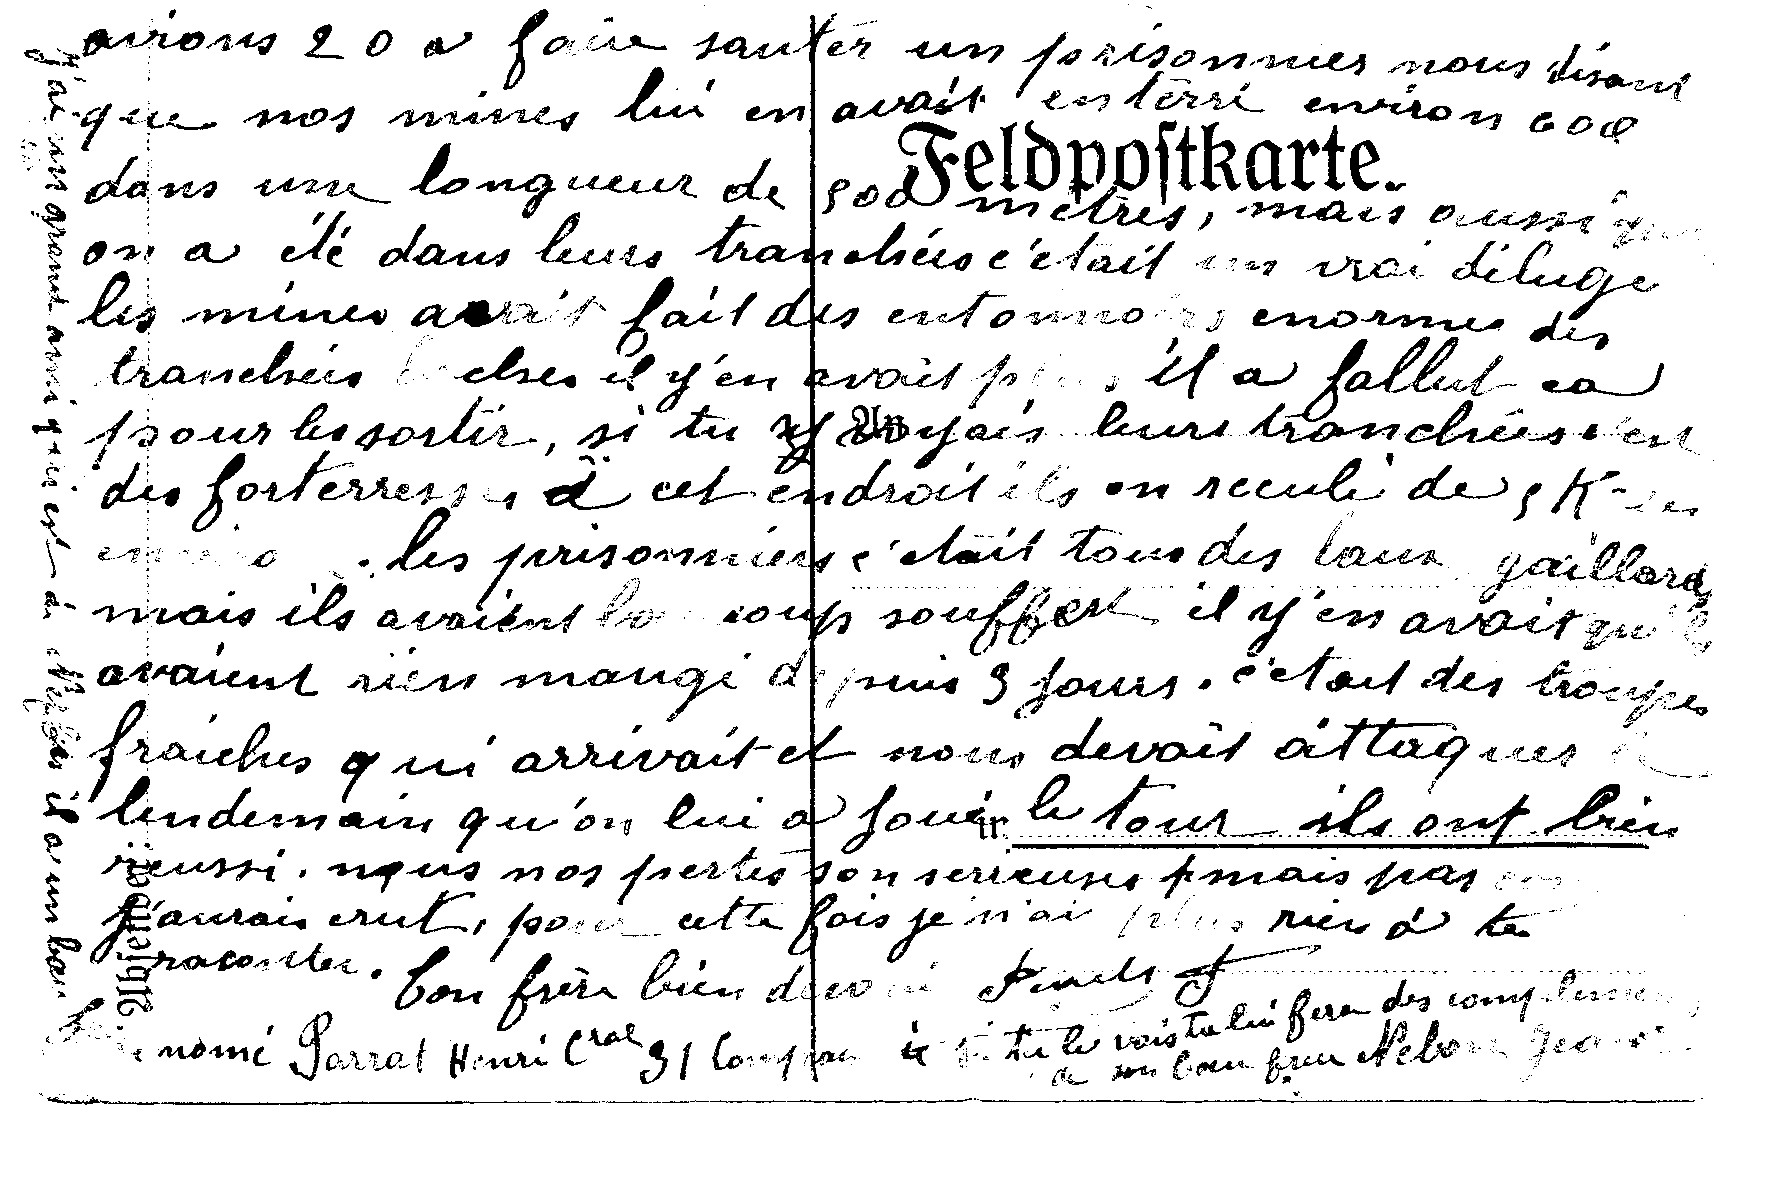 avions 20 a faire sauter un prisonnier nous disant
que nos mines lui en avait enterré environ 600
Feldpostkarte.
dans une longueur de 500 mètres, mais aussi
on a été dans leurs tranchées c'était un vrai déluge
les mines avait fait des entonnoirs enormes des
tranchées il y'en avait plus il a fallut ca
pour les sortir, si tu voyais leurs tranchées c'en
des forterresses à cet endroit ils on reculé de 5 K
les prisonniers c'était tous des baux gaillards
mais ils avaient beaucoup souffert il y'en avait qu'ils
avaient rien mangé depuis 3 jours. c'etait des troupes
fraiches qui arrivait et nous devait attaquer le
lendemain qu'on lui a joué le tour ils ont bien
réussi. nous nos pertes son serieuses mais pas
j'aurais crut, pour cette fois je n'ai plus rien à te
raconter. Ton frère bien devoué
nomé Parrat Henri Cral 31 Compag si tu le vois tu lui fera des compliments
a son beau frere
j'ai un grand ami qui est à il a un beau
Absender: